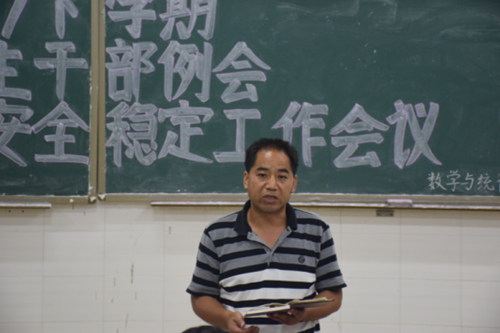 下学期
生干部例会
安全稳定工作会议
数学与统